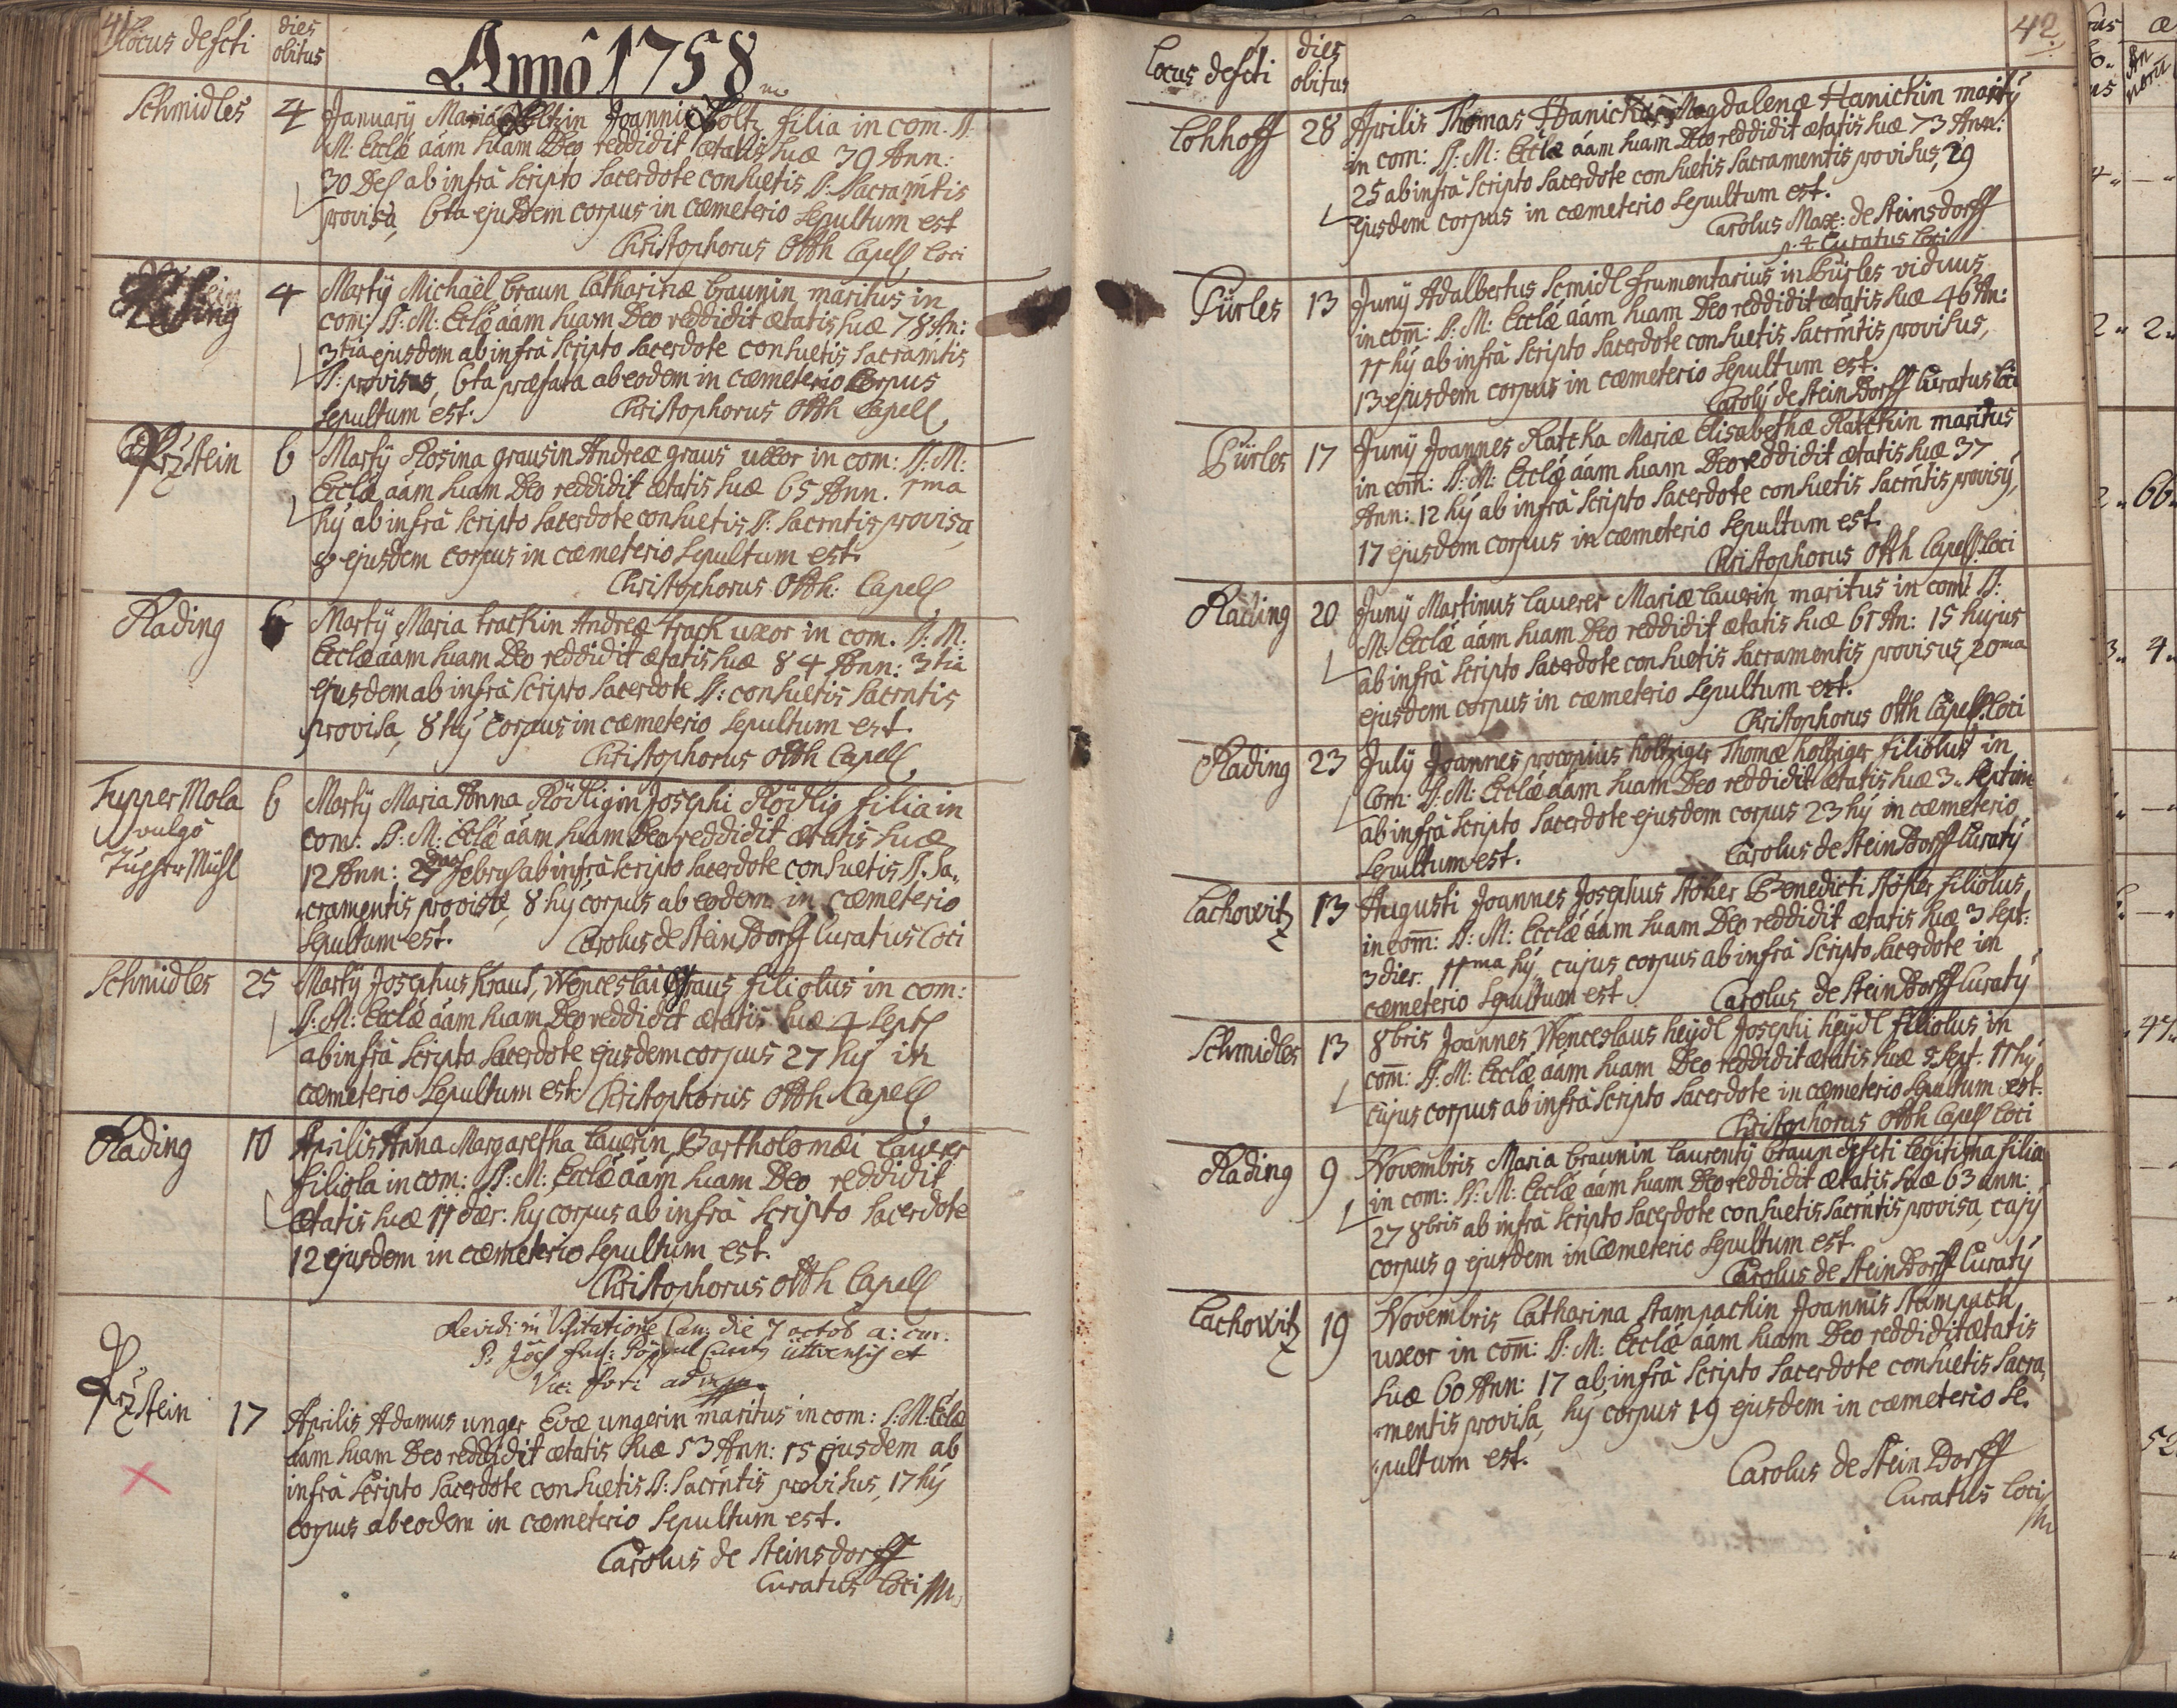 41
Locus defcti
dies
obitus
Anno 1758
Schmidles
4
January Maria Joannis Holtz filia in com. S:
M: Ecclæ aám suam Deo reddidit ætatis suæ 39 Ann:
30 ab infrà scripto Sacerdote consuetis S: Sacramtis
provisa, 6ta ejusdem corpus in cæmeterio Sepultum est
Christophorus Otth Capell Loci
4
Martÿ Michaël braun Catharinæ braunin maritus in
com: S: M: Ecclæ aám suam Deo reddidit ætatis suæ 78 An:
3tia ejusdem ab infrà scripto Sacerdote consuetis Sacramtis
S: provisus, 6ta præfata ab eodem in cæmeterio Corpus
Sepultum est.
Christophorus Otth Capell
Przstein
6
Martÿ Rosina grausin Andreæ graus uxor in com: S: M:
Ecclæ aám suam Deo reddidit ætatis suæ 65 Ann. 1ma
hý ab infrà scripto Sacerdote consuetis S: Sacrntis provisa,
8 ejusdem corpus in cæmeterio Sepultum est.
Christophorus Otth: Capell
Rading
6
Martÿ Maria trachin Andreæ trach uxor in com. S: M:
Ecclæ aám suam Deo reddidit ætatis suæ 84 Ann: 3tia
ejusdem ab infrà scripto Sacerdote S: consuetis Sacrntis
provisa, 8 hý Corpus in cæmeterio Sepultum est.
Christophorus Otth Capell
Tupper Mola
vulgo
6
Martÿ Maria Anna Rödligin Josephi Rödlig filia in
com: S: M: Ecclæ aám suam Deo reddidit ætatis suæ
12 Ann: ab infrà scripto Sacerdote consuetis S. Sa„
„cramentis provisæ, 8 hý corpus ab eodem in cæmeterio
Sepultum est.
Carolus de SteinsDorff Curatus Loci
Schmidles
25
Martÿ Josephus Kraus, Wenceslai graus filiolus in com:
S: M: Ecclæ aám suam Deo reddidit ætatis suæ 4 Sept
ab infrà scripto Sacerdote ejusdem corpus 27 hý in
cæmeterio Sepultum est.
Christophorus Otth Capell
Rading
10
Aprilis Anna Margaretha Lauerin Bartholomæi Lauerer
filiola in com: S: M: Ecclæ aám suam Deo reddidit
ætatis suæ 11 dier: hý corpus ab infrà scripto Sacerdote
12 ejusdem in cæmeterio Sepultum est.
Christophorus Otth Capell
Revidi in Visitatione Can: die 7 octob a: cur:
Przstein
17
Aprilis Adamus unger Evæ ungerin maritus in com: S: M: Ecclæ
aám suam Deo reddidit ætatis suæ 53 Ann: 15 ejusdem ab
infrà scripto Sacerdote consuetis S: Sacrntis provisus, 17 hý
corpus ab eodem in cæmeterio Sepultum est.
Carolus de Steinsdorff
Curatus Loci
42
Locus defcti
dies
obitus
Lohhoff
28
Aprilis Thomas Hanich Magdalenæ Hanichin marity
in com: S: M: Ecclæ aám suam Deo reddidit ætatis suæ 73 Ann:
25 ab infrà scripto Sacerdote consuetis Sacramentis provisus, 29
ejusdem corpus in cæmeterio Sepultum est.
Carolus Max: de Steinsdorff
p. t. Curatus Loci
Pürles
13
Junÿ Adalbertus Scmidl frumentarius in Pürles viduus
in com: S: M: Ecclæ aám suam Deo reddidit ætatis suæ 46 An:
11 hý ab infrà scripto Sacerdote consuetis Sacrmtis provisus,
13 ejusdem corpus in cæmeterio Sepultum est.
Carolý de SteinsDorff Curatus Loci
Pürles
17
Junÿ Joannes Ratcka Mariæ Elisabethæ Ratckin maritus
in com: S: M: Ecclæ aám suam Deo reddidit ætatis suæ 37
Ann: 12 hý ab infrà scripto Sacerdote consuetis Sacrntis provisý,
17 ejusdem corpus in cæmeterio Sepultum est.
Christophorus Otth Capell Loci
Rading
20
Junÿ Martinus Lauerer Mariæ Lauerin maritus in com: S:
M: Ecclæ aám suam Deo reddidit ætatis suæ 61 An: 15 hujus
ab infrà scripto Sacerdote consuetis Sacramentis provisus, 20ma
ejusdem corpus in cæmeterio Sepultum est.
Christophorus Otth Capell: Loci
Rading
23
Julÿ Joannes procopius holtziger Thomæ holtziger filiolus in
com: S: M: Ecclæ aám suam Deo reddidit ætatis suæ 3. Septim
ab infrà scripto Sacerdote ejusdem corpus 23 hý in cæmeterio
Sepultum est.
Carolus de SteinsDorff Curatý
Lachowitz
13
Augusti Joannes Josephus Stöker Benedicti Stöker filiolus
in com: S: M: Ecclæ aám suam Deo reddidit ætatis suæ 3 Sept:
3 dier. 11ma hý, cujus corpus ab infrà scripto Sacerdote in
cæmeterio Sepultum est.
Carolus de SteinsDorff Curatý
Schmidles
13
8bris Joannes Wenceslaus heÿdl Josephi heÿdl filiolus in
com: S: M: Ecclæ aám suam Deo reddidit ætatis suæ 5 Sept. 11 hý
cujus corpus ab infrà scripto Sacerdote in cæmeterio Sepultum est.
Christophorus Otth Capell Loci
Rading
9
Novembris Maria braunin Laurentÿ braun defcti legitima filia
in com: S: M: Ecclæ aám suam Deo reddidit ætatis suæ 63 ann:
27 8bris ab infrà scripto Sacerdote consuetis Sacrntis provisa, cujý
corpus 9 ejusdem in Cæmeterio Sepultum est.
Carolus de SteinsDorff Curatý
Lachowitz
19
Novembris Catharina Stampachin Joannis Stampach
uxor in com: S: M: Ecclæ aám suam Deo reddidit ætatis
suæ 60 Ann: 17 ab infrà scripto Sacerdote consuetis Sacra„
„mentis provisa, hý corpus 19 ejusdem in cæmeterio Se„
„pultum est.
Carolus de SteinsDorff
Curatus Loci